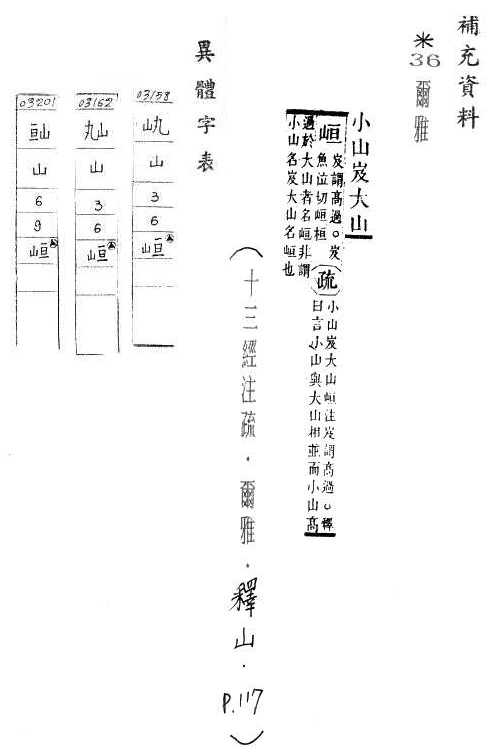 補充資料
*36爾雅
小山岌大山
峘
岌謂高過○岌
魚泣切峘桓
疏
小山岌大山峘注岌謂高過○釋
曰言小山與大山相並而小山高
過於大山者名峘非謂
小山名岌大山名峘也
(十三經注疏．爾雅．釋山．P.117)
異體字表
03158
山
3
6
峘
03162
山
3
6
峘
03201
山
6
9
峘